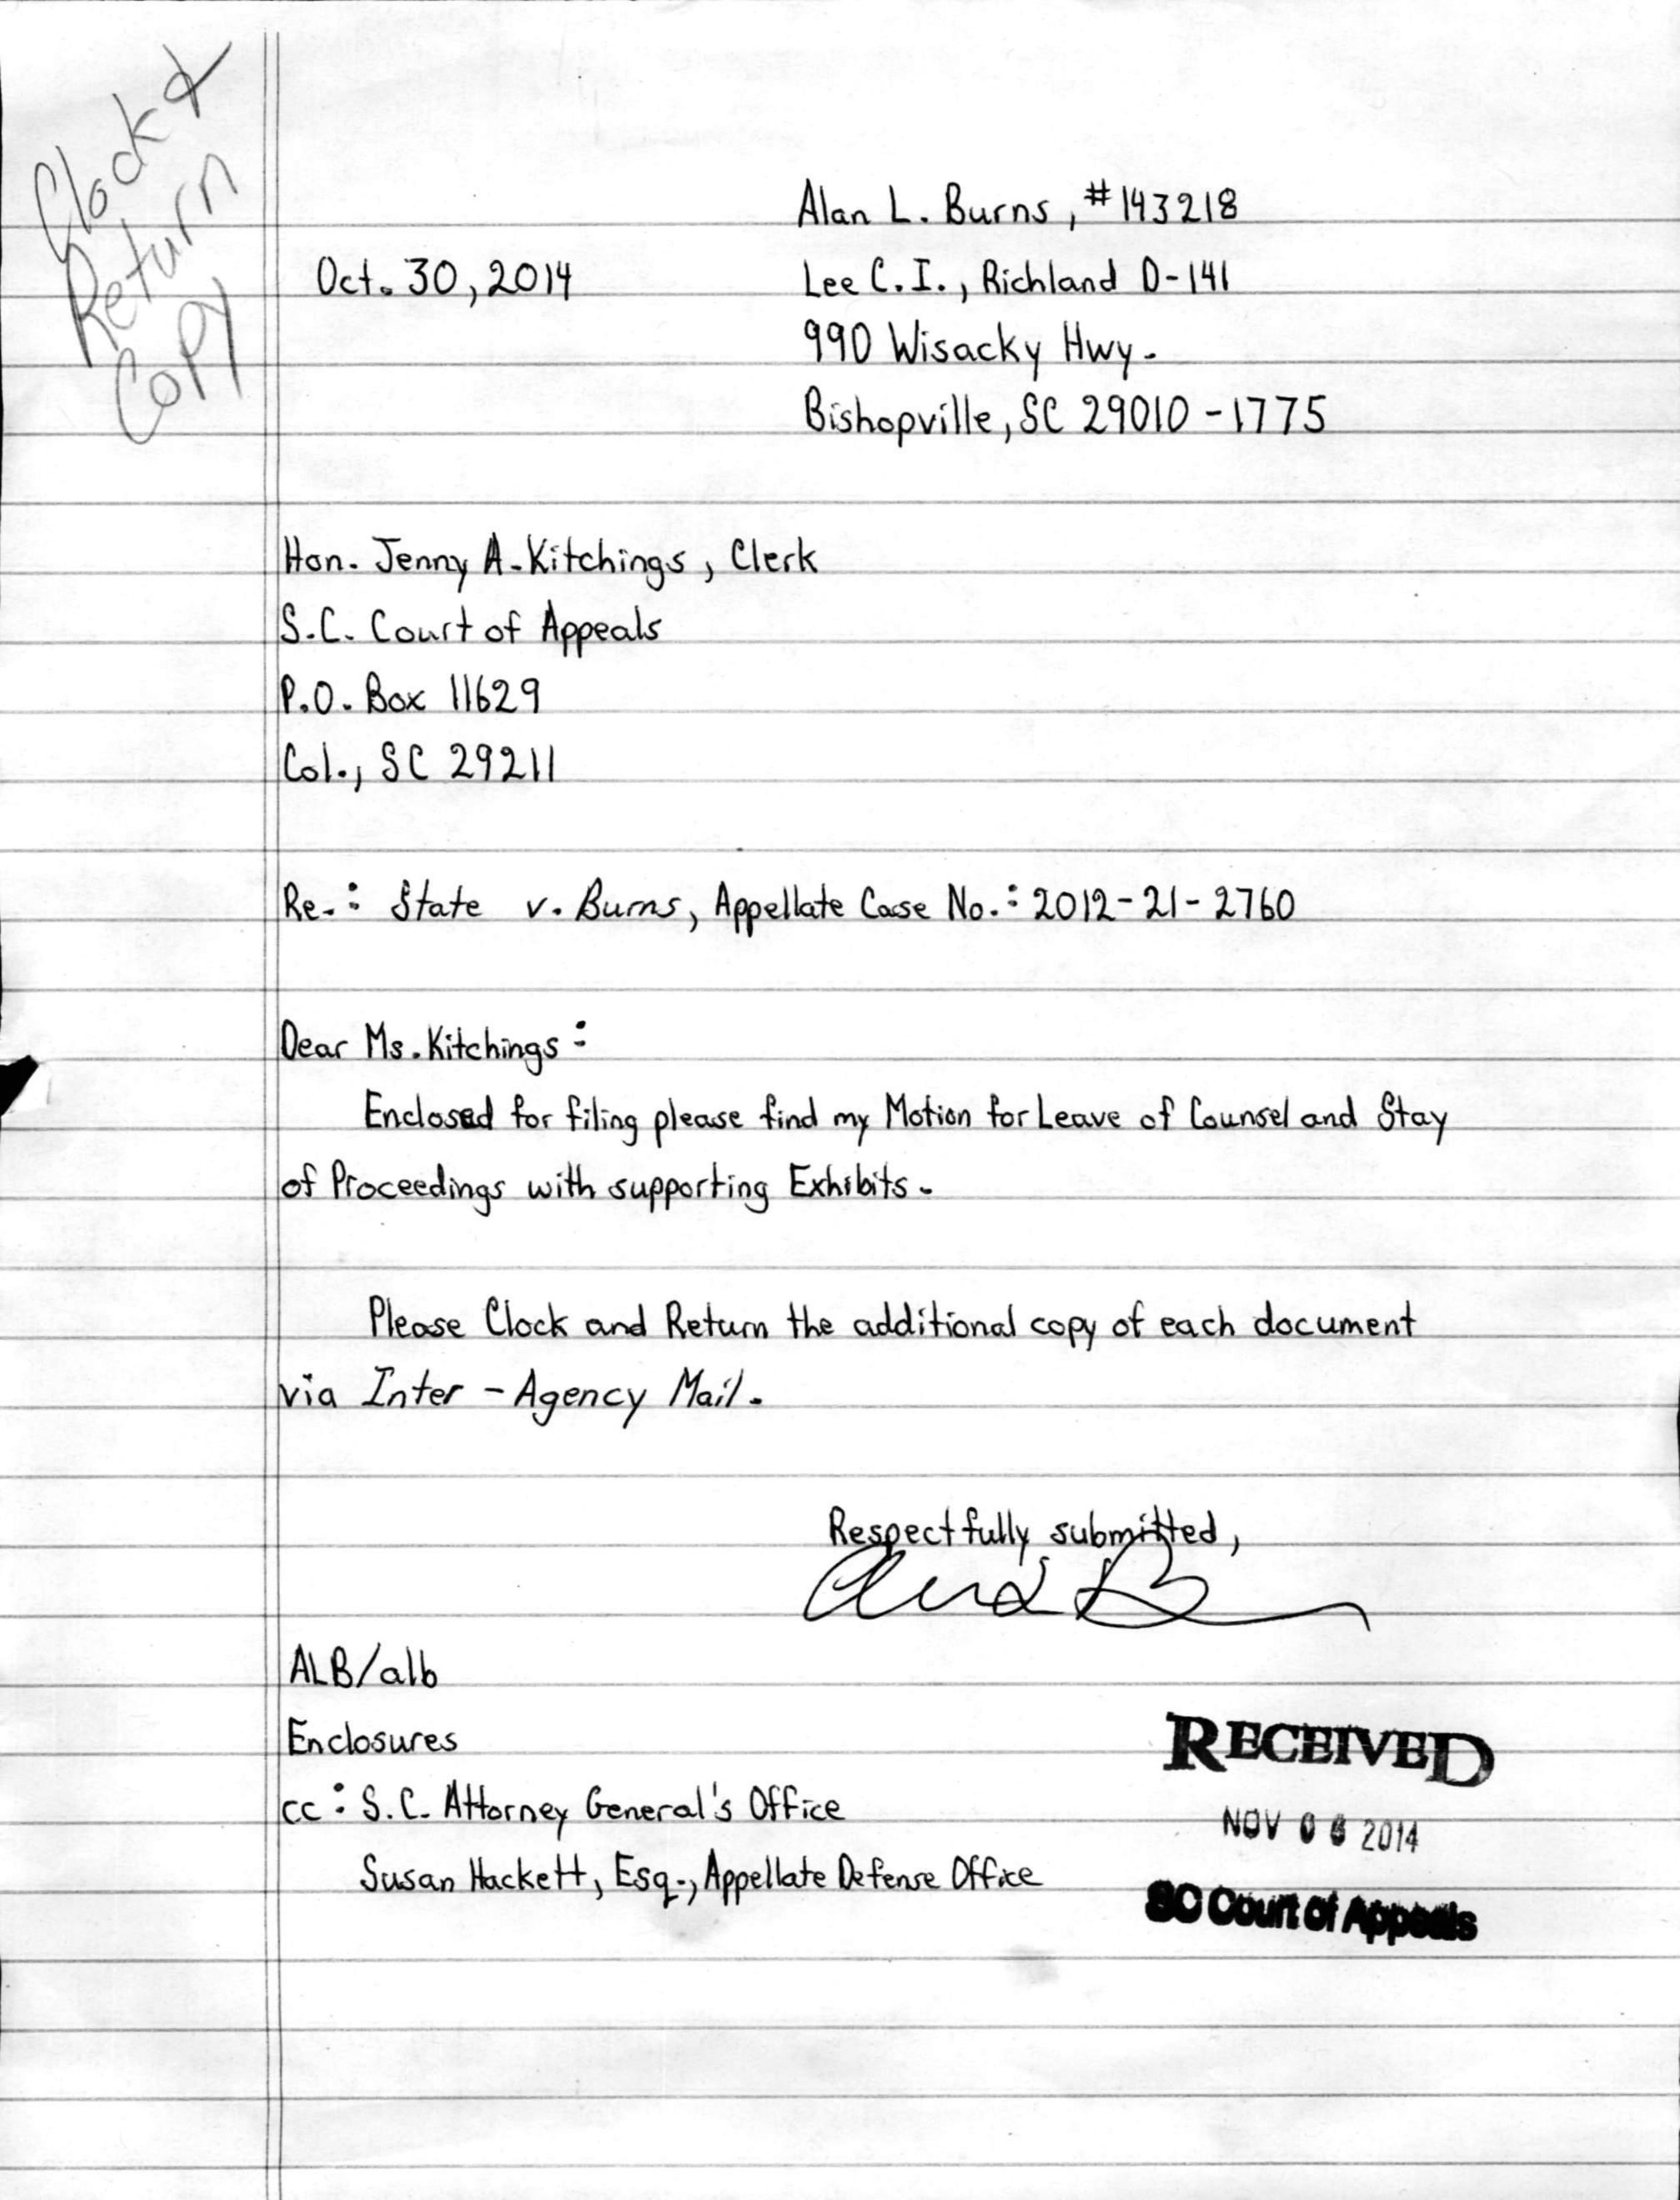 Clock &
Return
Copy
Alan L. Burns, #143218
Oct. 30, 2014
Lee C.I., Richland D-141
990 Wisacky Hwy.
Bishopville, SC 29010-1775
Hon. Jenny A. Kitchings, Clerk
S.C. Court of Appeals
P.O. Box 11629
Col., SC 29211
Re.: State v. Burns, Appellate Case No.: 2012-21-2760
Dear Ms. Kitchings:
Enclosed for filing please find my Motion for Leave of Counsel and Stay
of Proceedings with supporting Exhibits.
Please Clock and Return the additional copy of each document
via Inter-Agency Mail.
Respectfully submitted,
ALB/alb
Enclosures
cc: S.C. Attorney General's Office
Susan Hackett, Esq., Appellate Defense Office
RECEIVED
NOV 06 2014
SC Court of Appeals